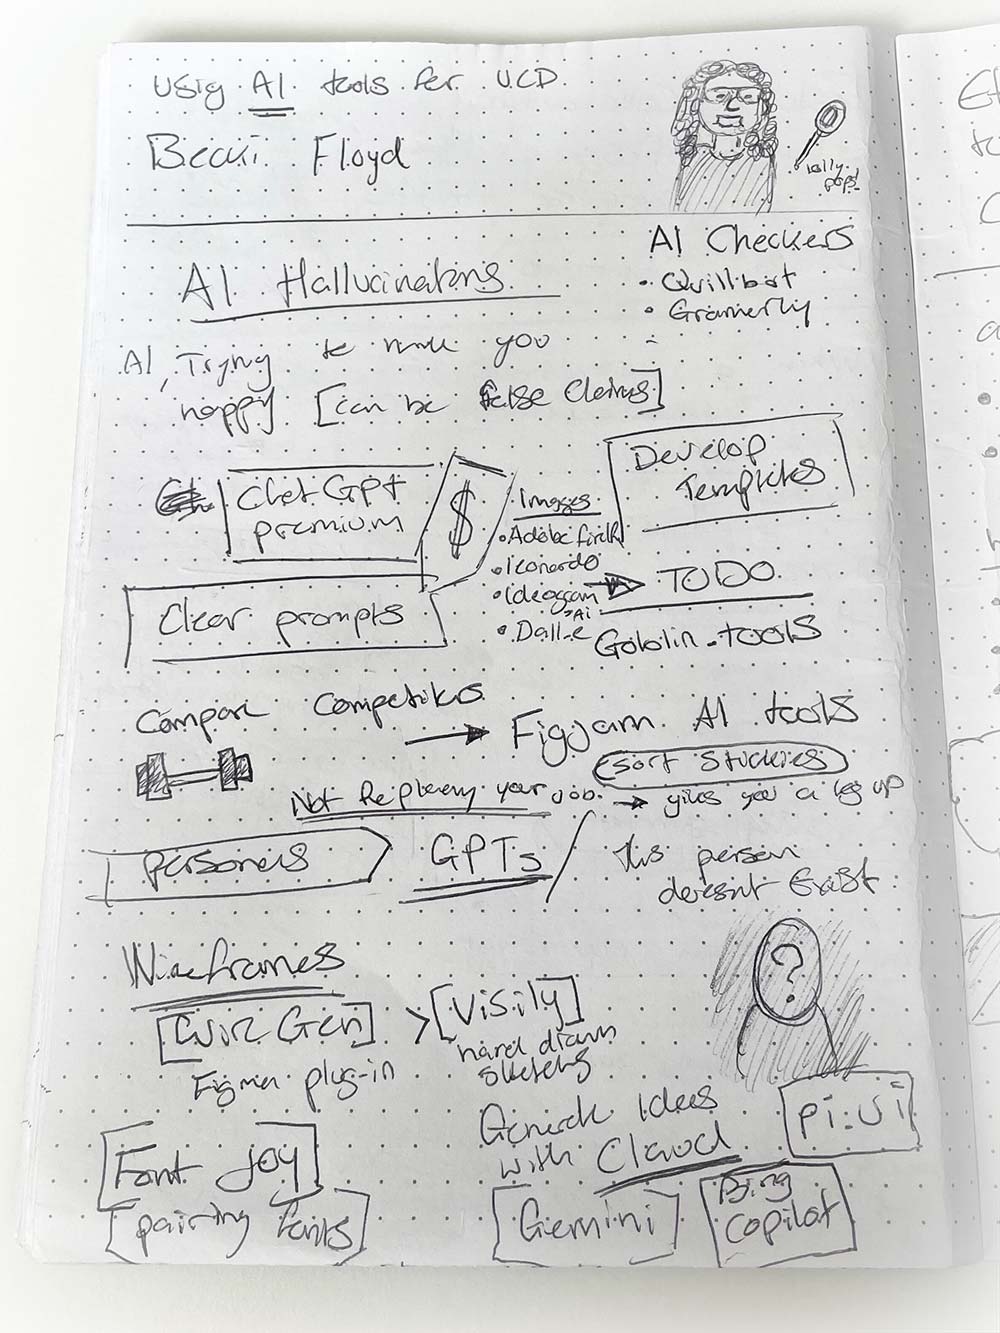 Using AI tools for UCD
Becki Floyd
lolly
pops!
AI Hallucinations
AI Checkers
• Quillbot
• Gramerly
AI, Trying to make you
happy [can be false claims]
Chat Gpt
premium
$
Images
• Adobe firefly
• leonardo
• ideogram
.Ai
• Dall-e
Develop
Templates
TODO
Goblin-tools
Clear prompts
Compare Competitors
Figjam AI tools
sort stickies
Not Replacing your job → gives you a leg up
personers
GPTs
this person
doesnt Exist
?
Wireframes
[Wire Gen] > [Visily]
Figma plug-in
hand drawn
sketches
Font joy
pairing fonts
Generate Ideas
with Claud
pi.ui
Gemini
Bing
copilot